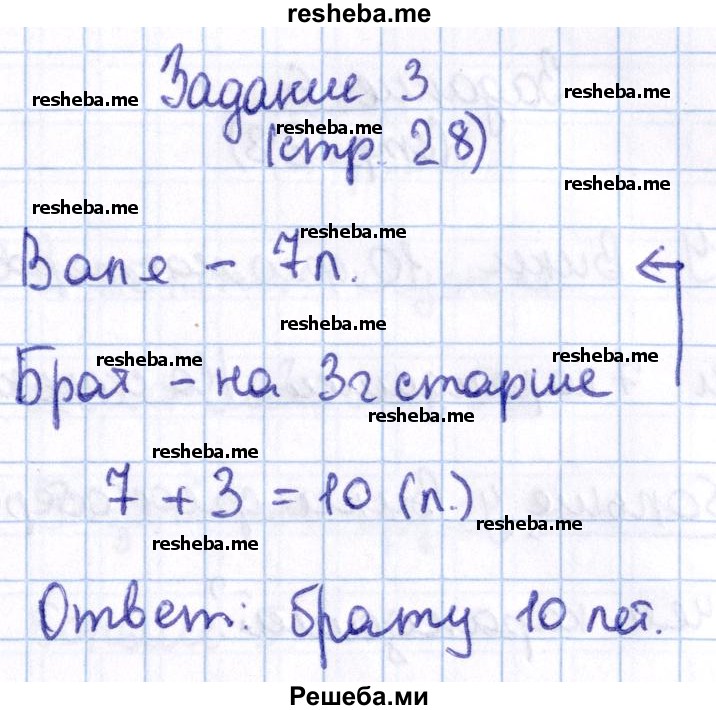 resheba.me
Задание 3
resheba.me
resheba.me
resheba.me
(стр. 28)
resheba.me
resheba.me
resheba.me
Ваня - 7 л.
resheba.me
resheba.me
resheba.me
Брат - на 3 г старше
resheba.me
resheba.me
7 + 3 = 10 (л.)
resheba.me
resheba.me
Ответ: брату 10 лет.
Решеба.ми